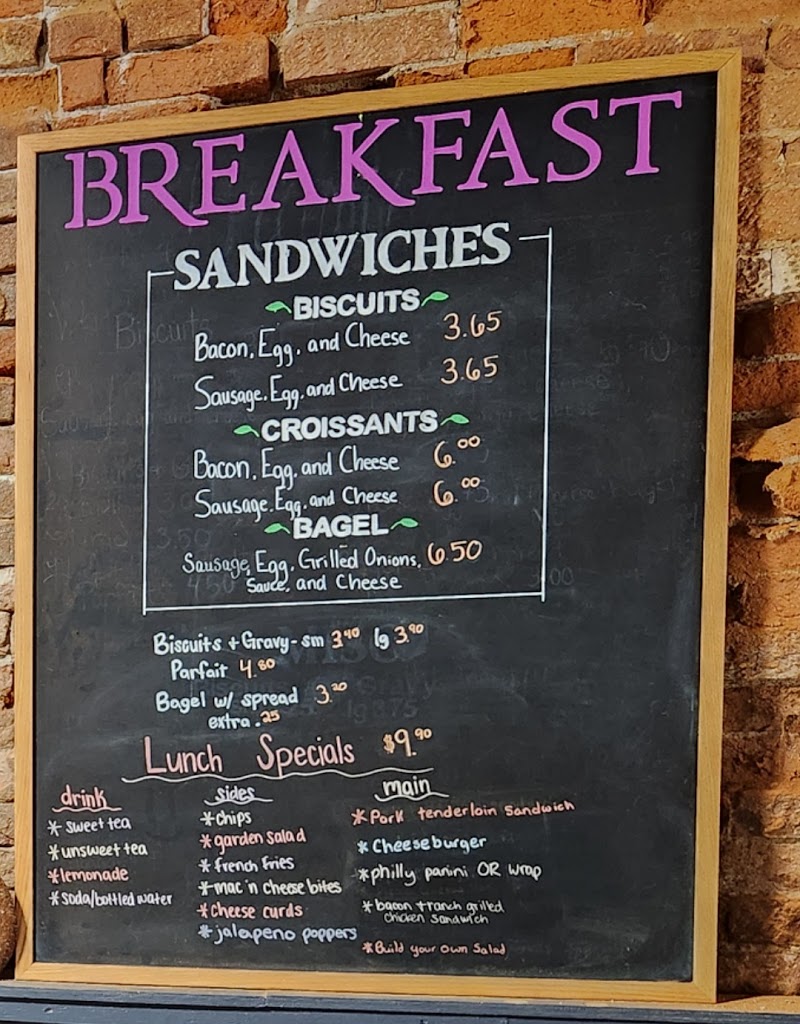 BREAKFAST
SANDWICHES
BISCUITS
Bacon, Egg, and Cheese 3.65
Sausage, Egg, and Cheese 3.65
CROISSANTS
Bacon, Egg, and Cheese 6.00
Sausage, Egg, and Cheese 6.00
BAGEL
Sausage, Egg, Grilled Onions, 6.50
Sauce, and Cheese
Biscuits + Gravy - sm 3.40 lg 3.90
Parfait 4.80
Bagel w/ spread 3.20
extra .25
Lunch Specials $9.90
drink
* sweet tea
* unsweet tea
* lemonade
* soda/bottled water
sides
* chips
* garden salad
* french fries
* mac 'n cheese bites
* cheese curds
* jalapeno poppers
main
* Pork tenderloin sandwich
* Cheeseburger
* philly panini OR wrap
* bacon + ranch grilled
chicken sandwich
* Build your own salad